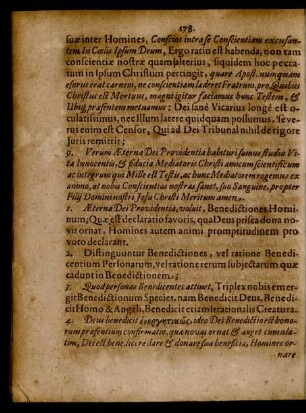 178.
suæ inter Homines, Conscius intra se Conscientiam excusan-
tem. In Cœlis Ipsum Deum, Ergo ratio est habenda, non tam
conscientiæ nostræ quam alterius, siquidem hoc pecca-
tum in Ipsum Christum pertingit, quare Apost. nunquam
esurus erat carnem, ne conscientiam læderet Fratrum, pro Quibus
Christus est Mortuus, magni igitur faciamus hunc Testem, &
Ubiq; præsentem metuamus: Dei sanè Vicarius longè est o-
culatissimus, nec Illum latere quidquam possumus. Seve-
rus enim est Censor, Qui ad Dei Tribunal nihil de rigore
Juris remittit;
9. Verum Æterna Dei Providentia habituri sumus studio Vi-
tæ Innocentis, & fiducia Mediatoris Christi amicum scientificum
ac integrum qui Mille est Testis, ac hunc Mediatorem rogemus ex
animo, ut nobis Conscientias nostras sanet, suo Sanguine, propter
Filij Domini nostri Jesu Christi Meritum amen.
1. Æterna Dei Providentia, voluit, Benedictiones Homi-
num; Quæ est declaratio favoris, qua Deus prisca domo nos
visornat, Homines autem animi promptitudinem pro
voto declarant.
2. Distinguuntur Benedictiones, vel ratione Benedi-
centium Personarum, vel ratione rerum subjectarum quæ
cadunt in Benedictionem;
3. Quod personas Benedicentes attinet, Triplex nobis emer-
git Benedictionum Species, nam Benedicit Deus, Benedi-
cit Homo & Angeli, Benedicit etiam Irrationalis Creatura.
4. Deus benedicit ἐνεργητικῶς, ideo Dei Benedictio est bono-
rum præsentium confirmatio, quæ novas ornat & auget cumula-
tim, Dei est benedicere dare & donare sua beneficia, Homines or-
nare